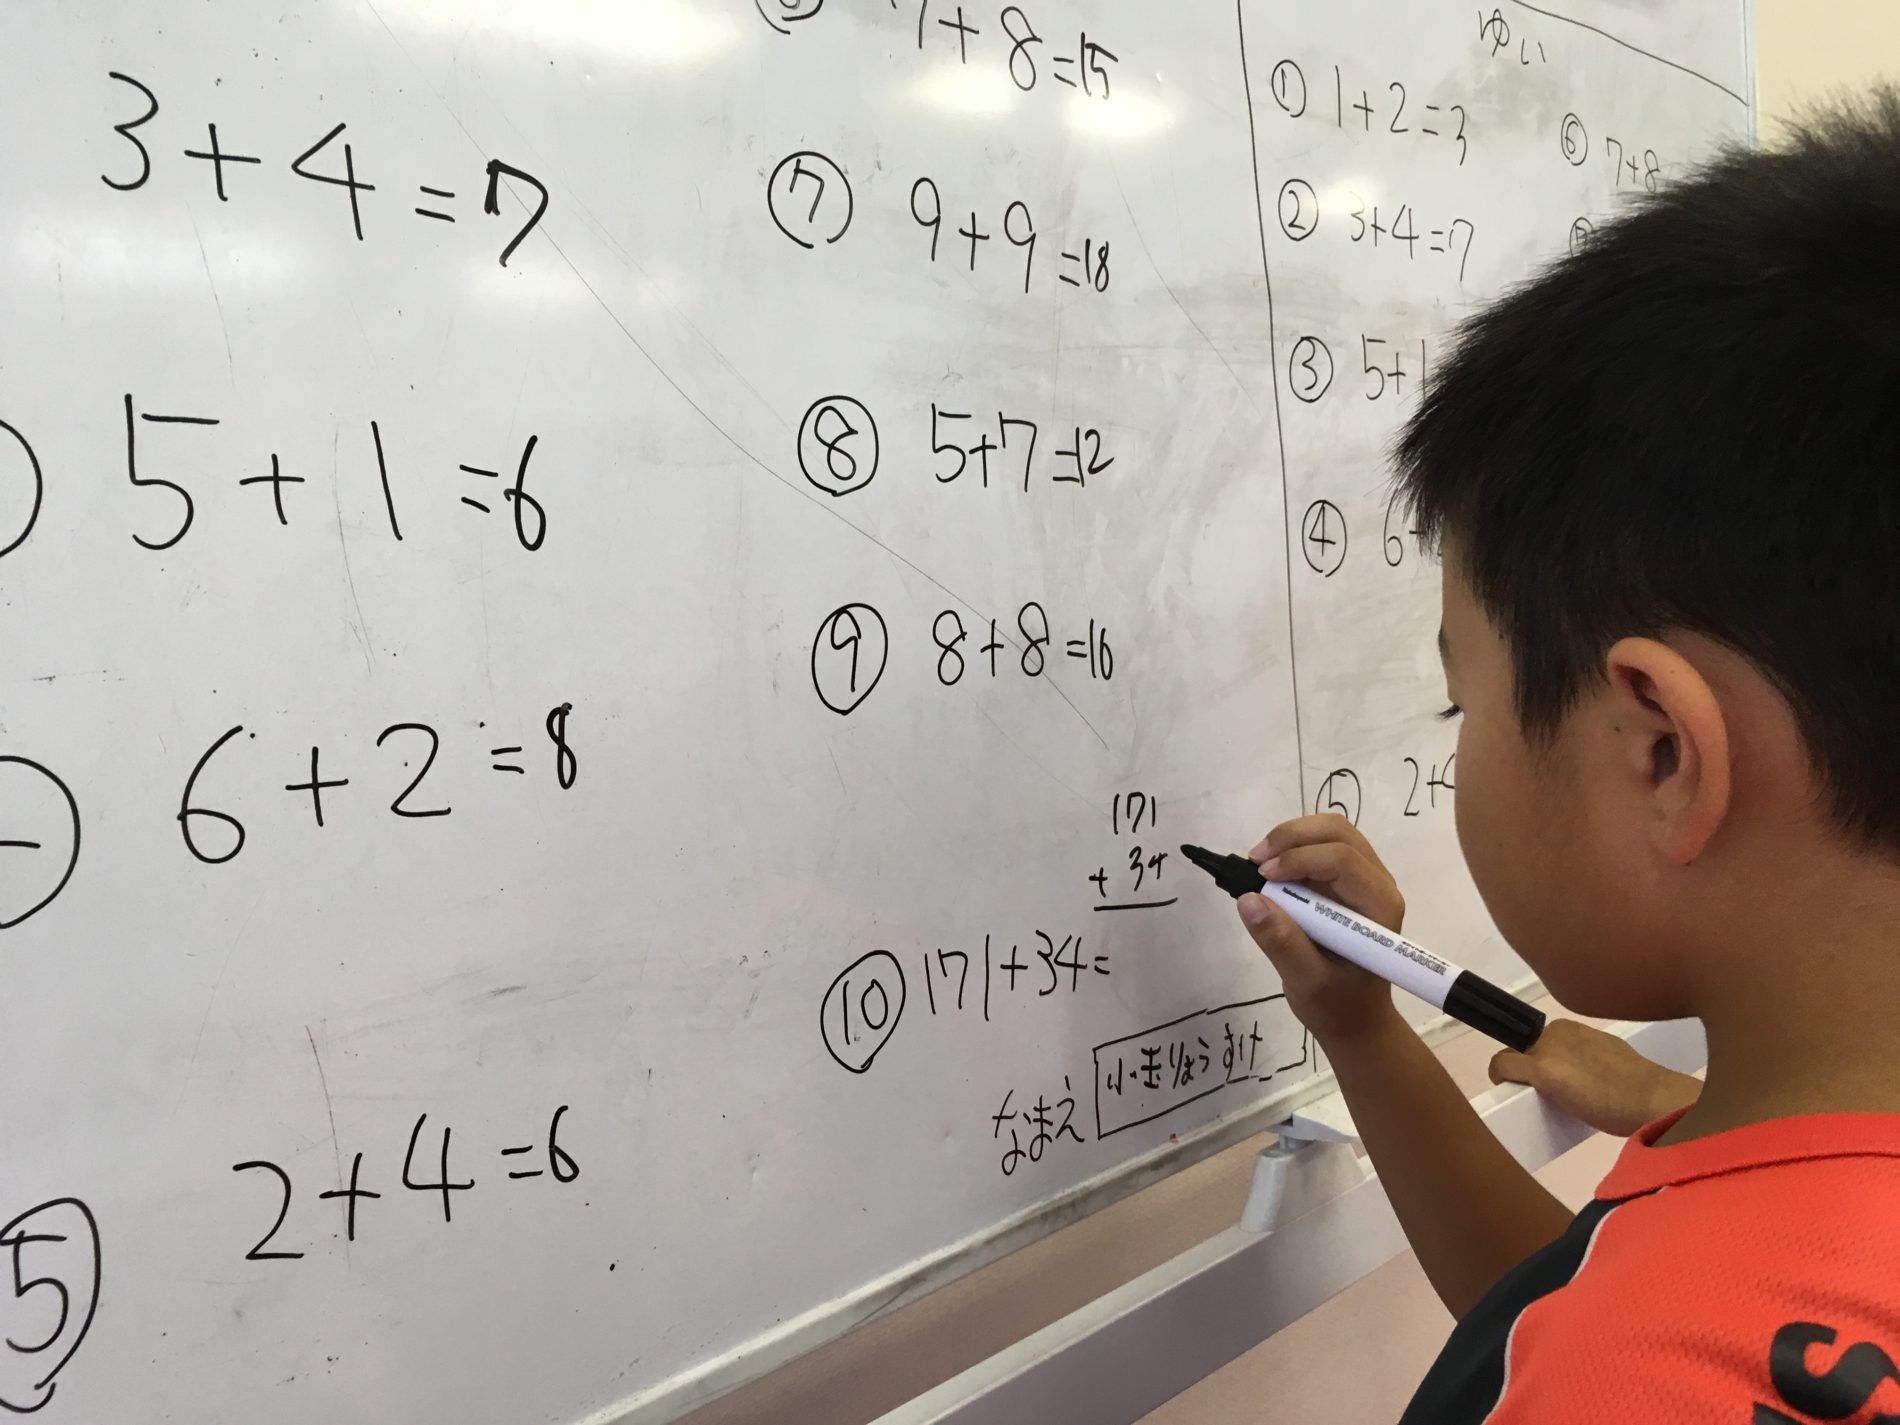 3+4=7
5+1=6
6+2=8
⑤ 2+4=6
7+8=15
⑦ 9+9=18
⑧ 5+7=12
⑨ 8+8=16
171
+ 34
⑩ 171+34=
なまえ 小玉りょうすけ
ゆい
① 1+2=3
② 3+4=7
③ 5+1
④ 6+
⑤ 2+
⑥ 7+8
WHITE BOARD MARKER